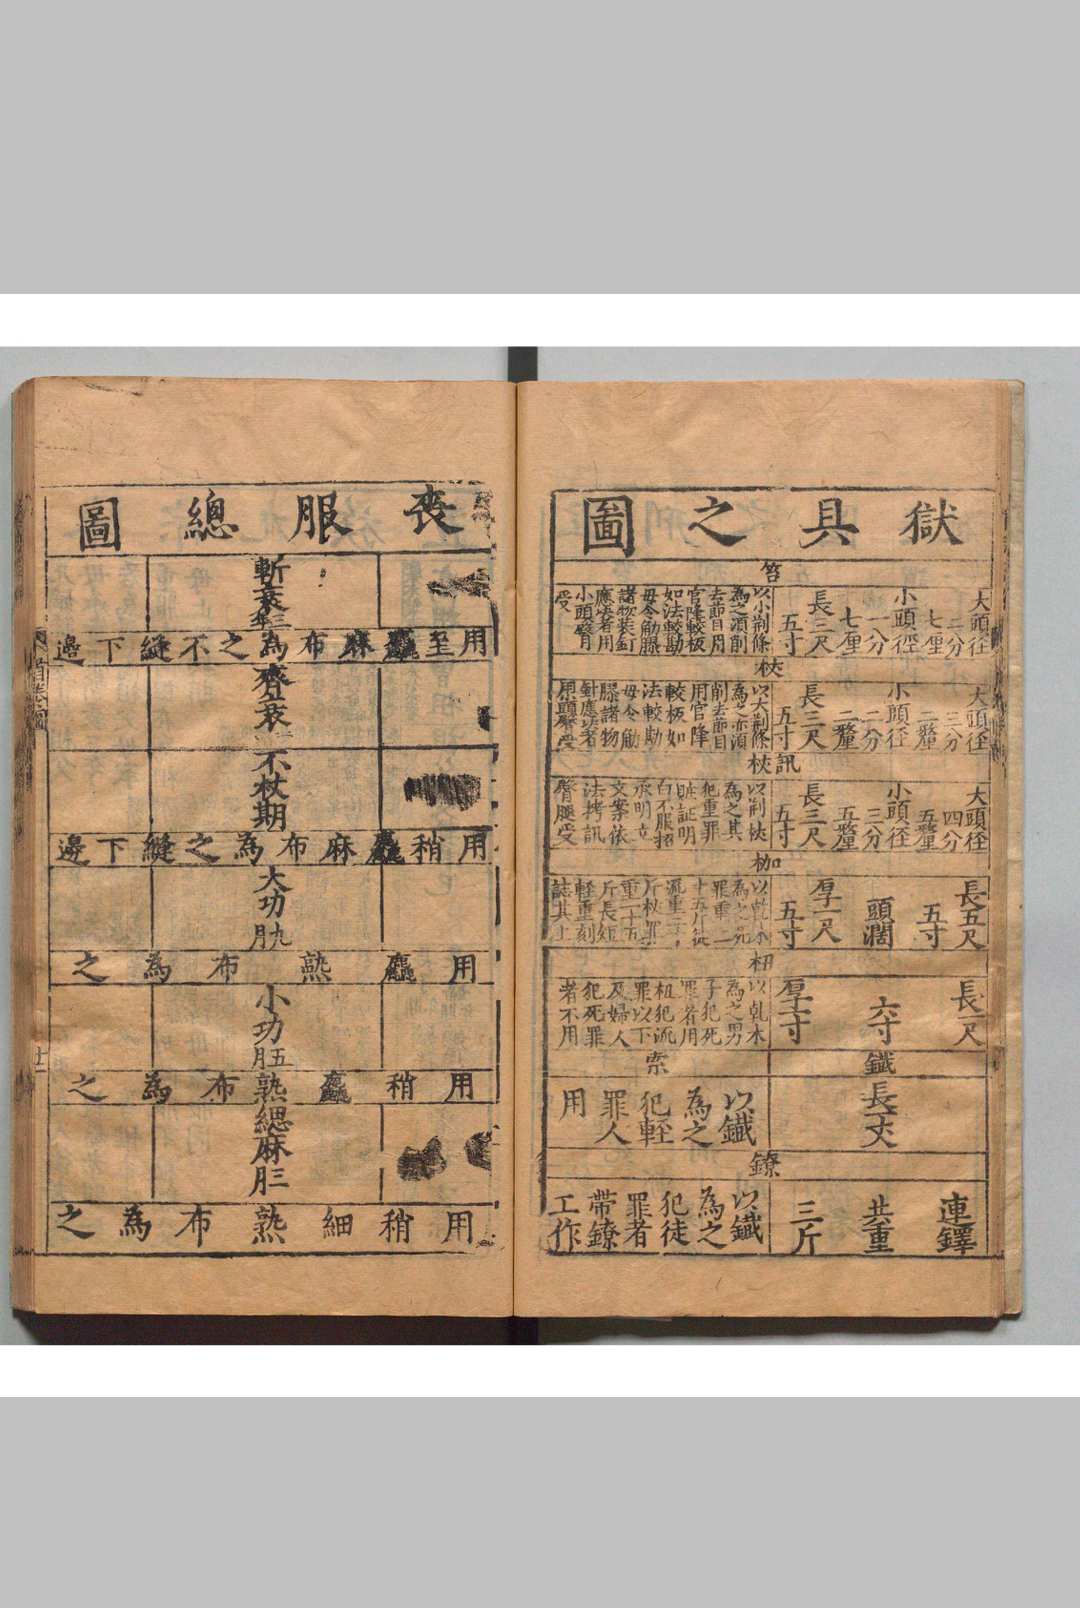 獄具之圖
笞
大頭徑
二分
七厘
小頭徑
一分
七厘
長三尺
五寸
以小荆條
為之須削
去節目用
官降較板
如法較勘
毋令觔膠
諸物裝釘
應决者用
小頭臀
受
杖
大頭徑
三分
二釐
小頭徑
二分
二釐
長三尺
五寸
以大荆條
為之亦須
削去節目
用官降
較板如
法較勘
毋令觔
膠諸物
釘應决者
臀受
訊杖
大頭徑
四分
五釐
小頭徑
三分
五釐
長三尺
五寸
以荆杖
為之其
犯重罪
贓証明
白不服招
承明立
文案依
法拷訊
臀腿受
枷
長五尺
五寸
頭闊
厚一尺
五寸
以乾木
為之死
罪重二
十五斤徒
流重二十
斤杖罪
重一十五
斤長短
輕重刻
誌其上
杻
長一尺
六寸
厚一寸
以乾木
為之男
子犯死
罪者用
杻犯流
罪以下
及婦人
犯死罪
者不用
鐵索
長一丈
以鐵
為之
犯輕
罪人
用
鐐
連鐶
共重
三斤
以鐵
為之
犯徒
罪者
帶鐐
工作
喪服總圖
斬衰三年
用至麤麻布為之不縫下邊
齊衰
不杖期
用稍麤麻布為之縫下邊
大功九月
用麤熟布為之
小功五月
用稍麤熟布為之
緦麻三月
用稍細熟布為之